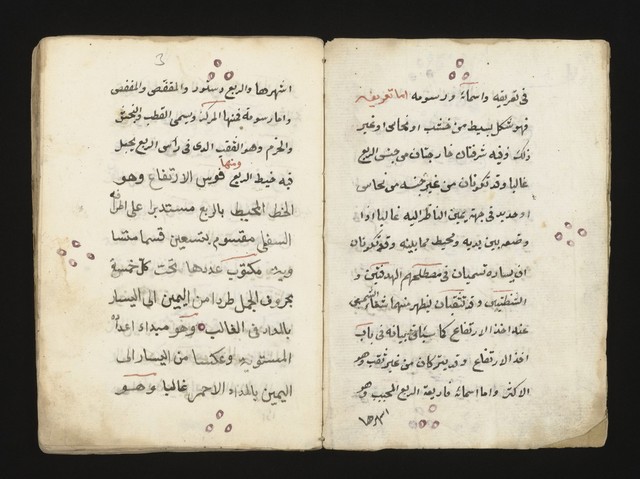 فى تعريفه واسمائه ورسومه اما تعريفه
فهو شكل بسيط من خشب او نحاس او غير
ذلك وفيه شرفتان خارجتان من جنس الربع
غالبا وقد تكونان من غير جنسه من نحاس
او حديد فى جهة يمين الناظر اليه غالبا اذا
وضعه بين يديه ومحيط مما يليه وقد تكونان
ان يساره وتسميان فى مصطلحهم الهدفتين و
الشظيتين وقد تثقبان ليظهر منهما شعاع الشمس
عند اخذ الارتفاع كما سيأتى بيانه فى باب
اخذ الارتفاع وقد يتركان من غير ثقب وهو
الاكثر واما اسمائه فاربعة الربع المجيب وهو
اشهرها
3
اشهرها والربع دستور والمقفص والمقفص
واما رسومه فمنها المركز ويسمى القطب
والخرم وهو الثقب الذى فى راس الربع يجعل
فيه خيط الربع ومنها قوس الارتفاع وهو
الخط المحيط بالربع مستديرا على اطرافه
السفلى مقسوم بتسعين قسما متسا
ويه مكتوب عددها تحت كل خمسة
بحروف الجمل طردا من اليمين الى اليسار
بالمداد فى الغالب وهو مبداء اعداد
المستويه وعكسا من اليسار الى
اليمين بالمداد الاحمر غالبا وهو